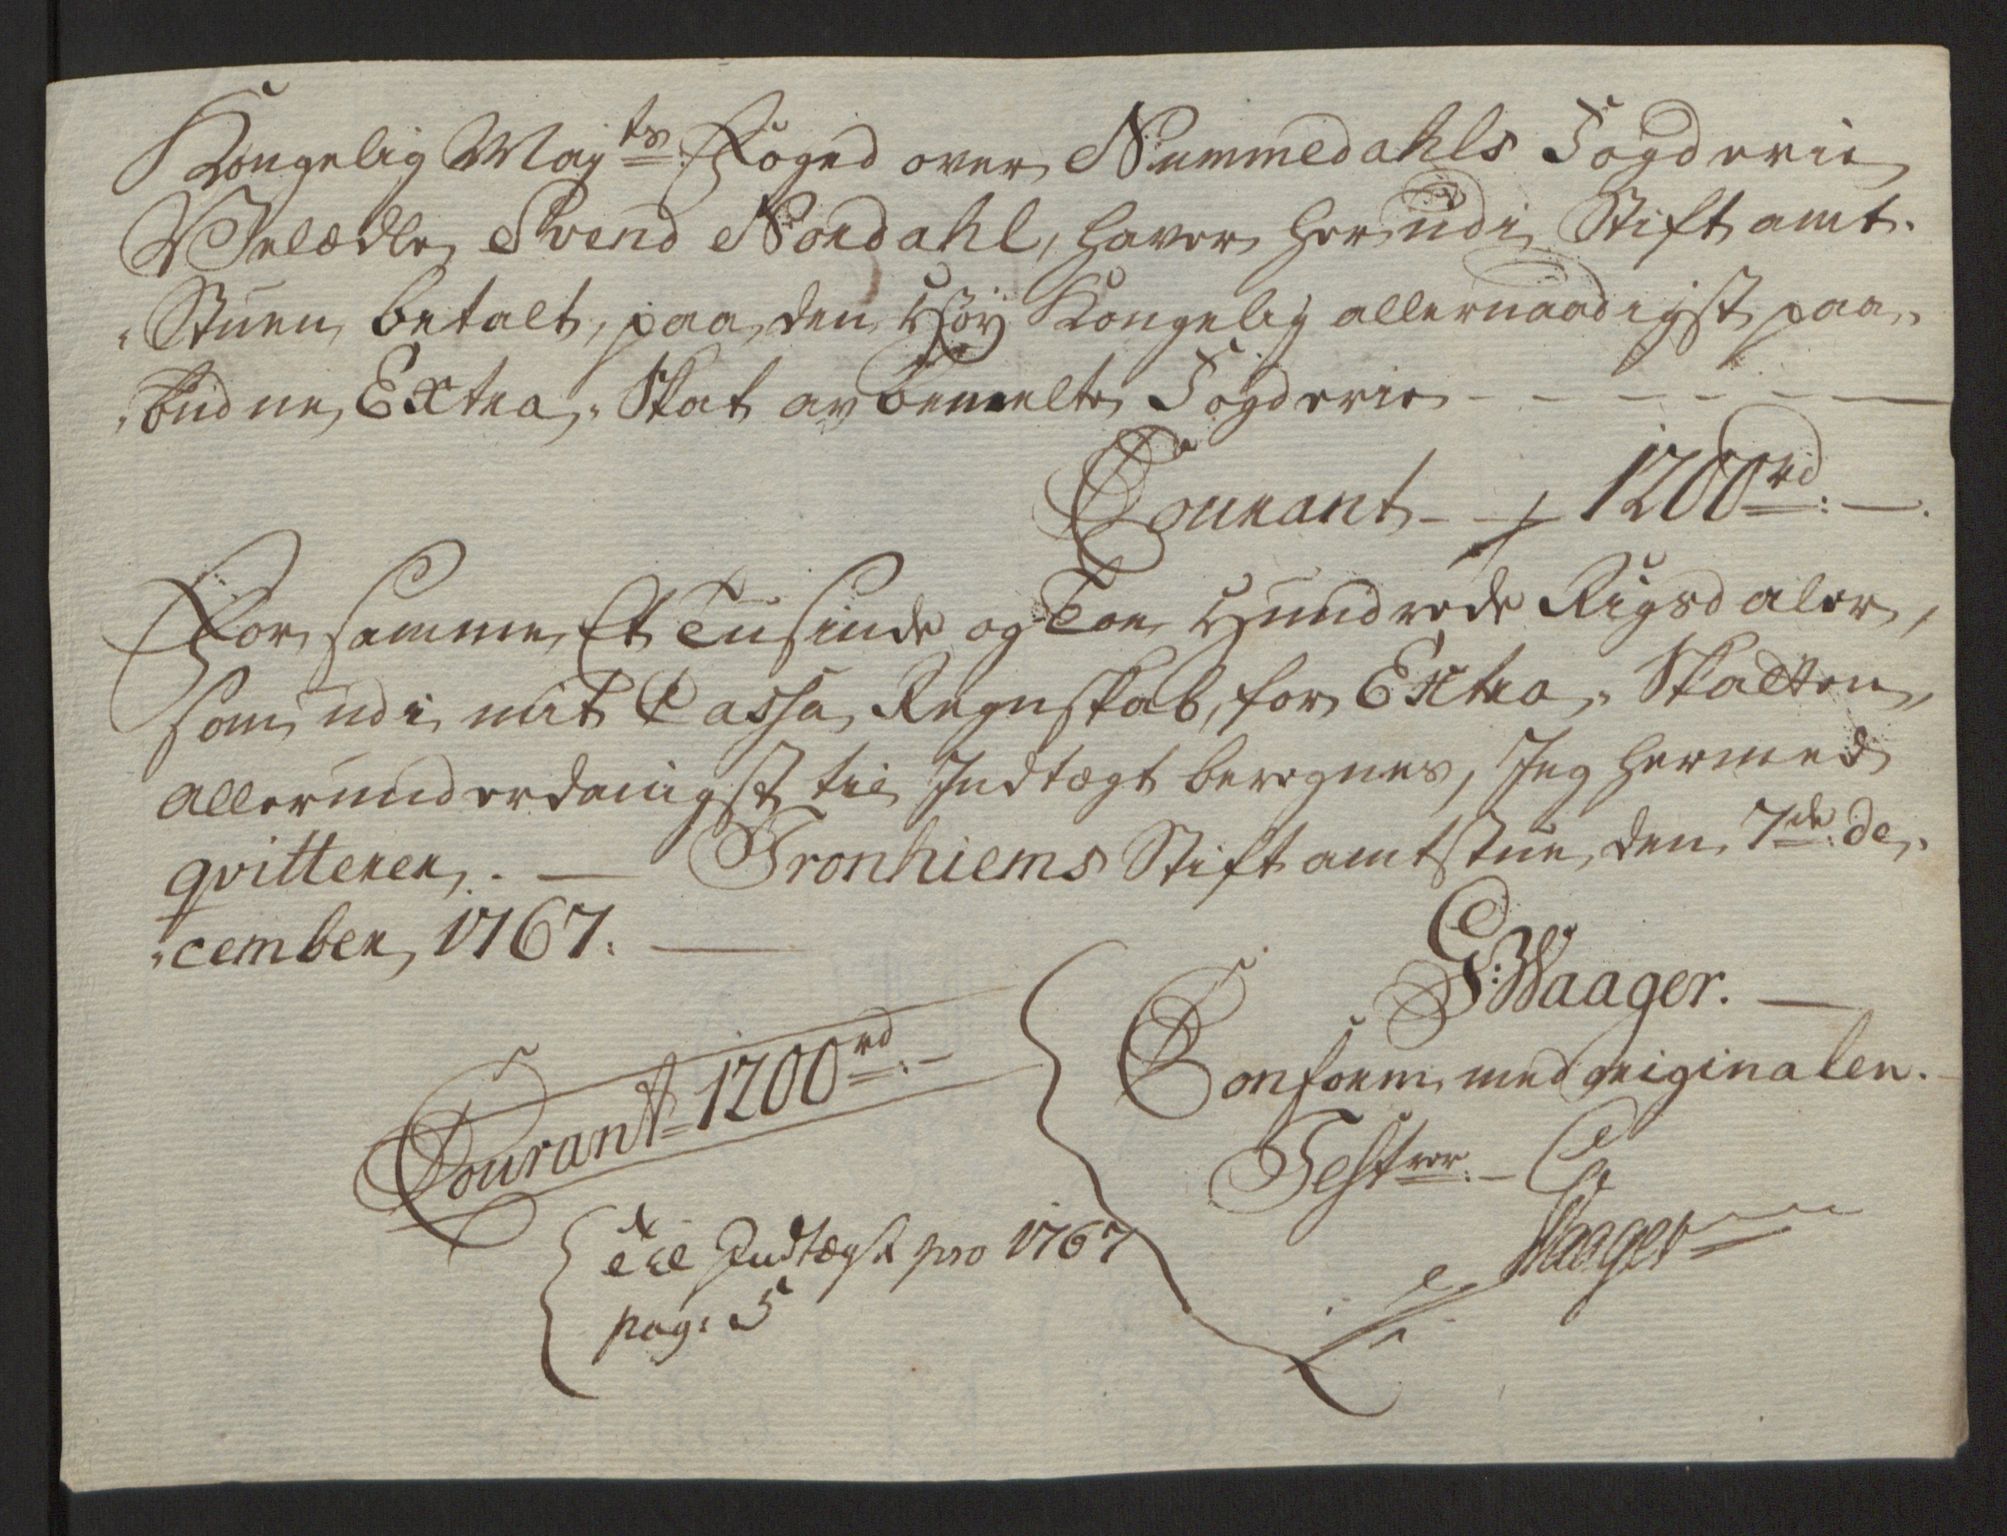 Kongelig Mayts Foged over Nummedahls Fogderie
Velædle Svend Nordahl, haver herudi Stiftamt-
Stuen betalt, paa den Høy Kongelig allernaadigst paa-
budne Extra-Skat av bemelte Fogderie - - - - - -
Courant - - 1200rd: -
For samme Et Tusinde og Toe Hundrede Rigsdaler,
som udi mit Cassa Regnskab, for Extra-Skatten
allerunderdanigst til Indtægt beregnes, Jeg hermed
qvitterer. — Tronhiems Stiftamtstue, den 7de de-
cember, 1767. —
G: Waager. —
Conform med originalen.
Testerer. -
G Waager
Courant 1200rd: -
til Indtægt pro 1767
pag: 5